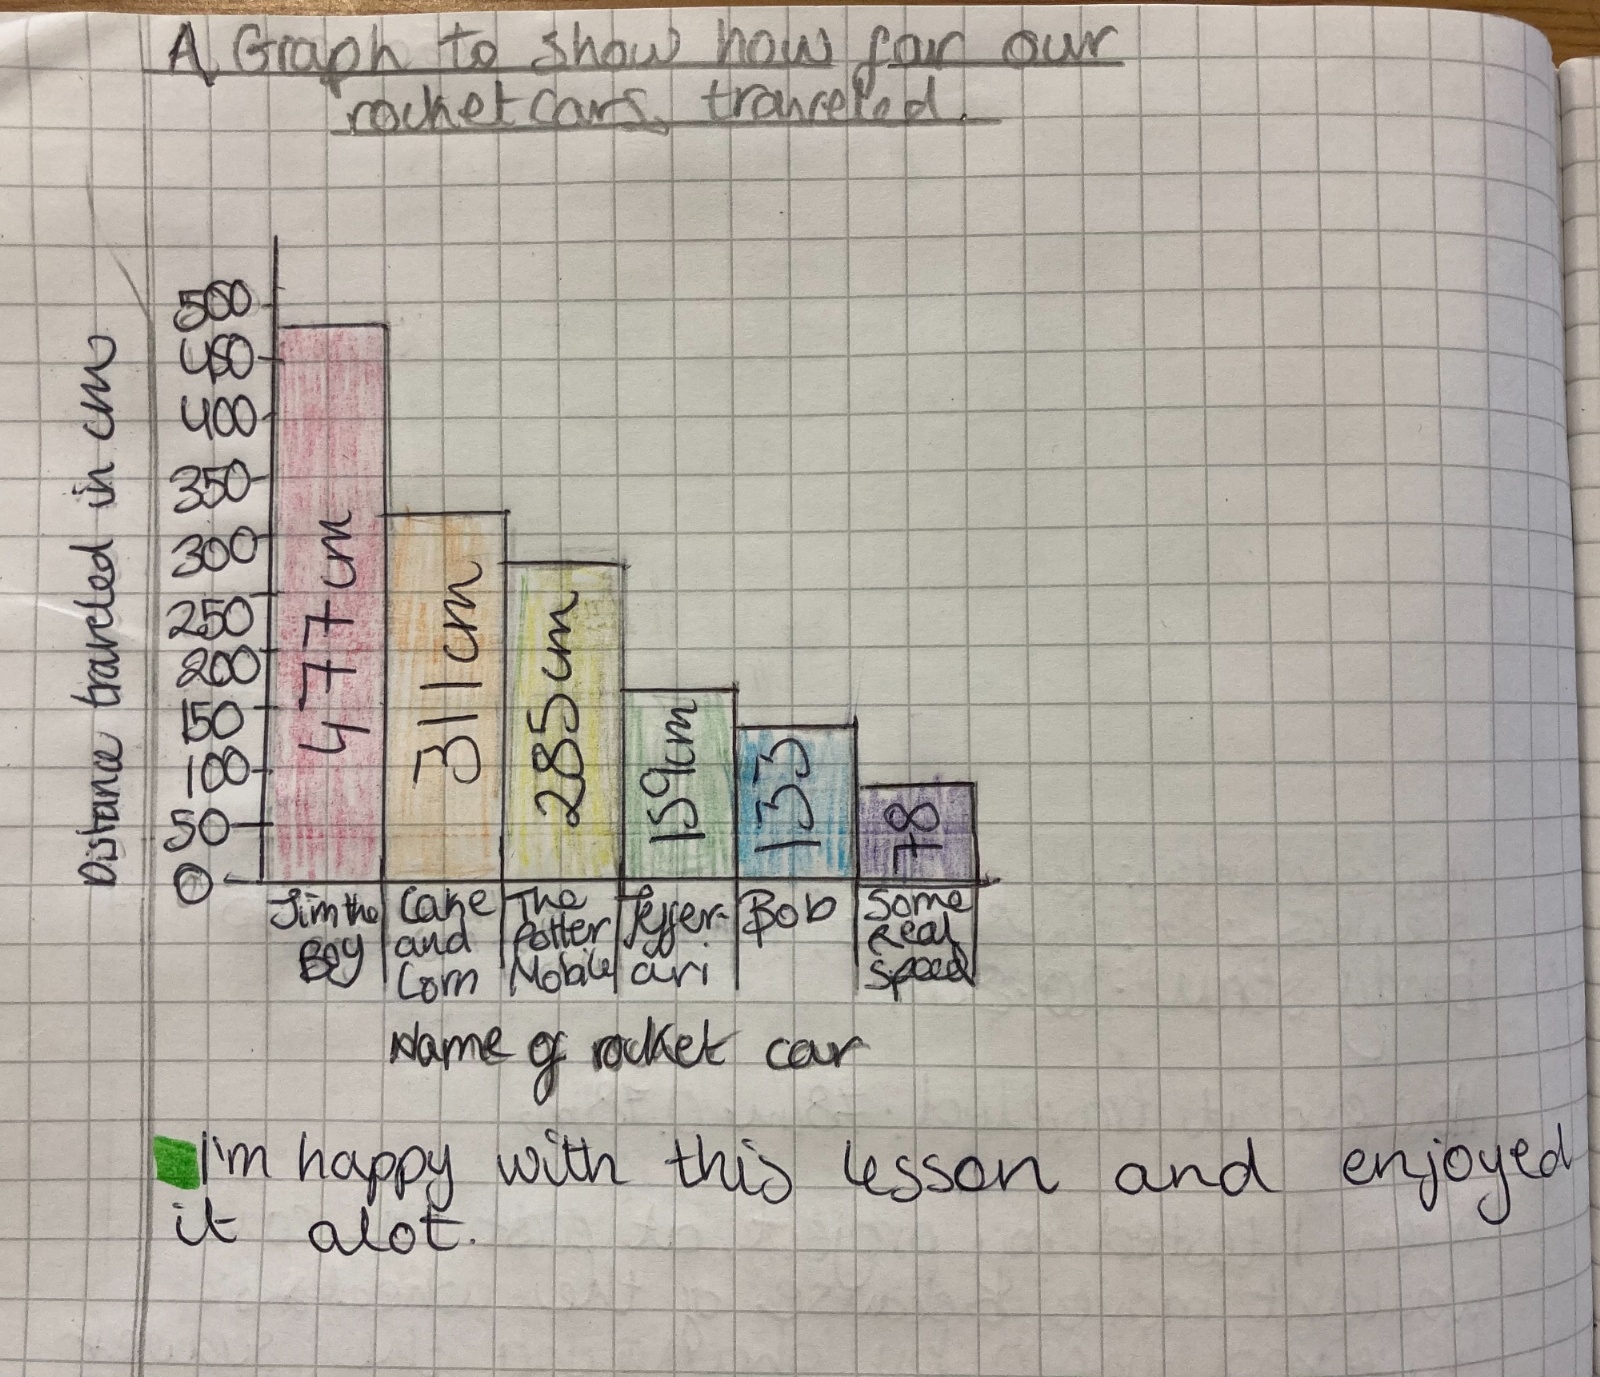 A Graph to show how far our
rocket cars, traveled.
Distane traveled in cm
500
450
400
350
300
250
200
150
100
50
0
477cm
311cm
285cm
159cm
133
78
Jim the
Boy
Cake
and
Corn
The
Potter
Mobile
Jeffer-
ari
Bob
Some
Real
Speed
Name of rocket car
I'm happy with this lesson and enjoyed
it alot.